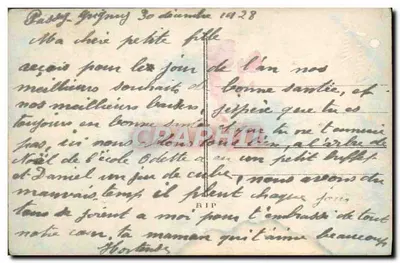 Passy Grigny 30 décembre 1928
Ma chère petite fille
reçois pour le jour de l'an nos
meilleurs souhaits de bonne santée, et
nos meilleurs baisers, j'espère que tu es
toujours en bonne santé que tu ne t'ennuie
pas, ici nous allons bien, a l'arbre de
Noël de l'école Odette a eu un petit buffet
et Daniel un jeu de cube, nous avons du
mauvais temp il pleut chaque jour
tous se joient a moi pour t'embrassé de tout
notre cœur, ta maman qui t'aime beaucoup
Hortense
CPARAMA
RIP